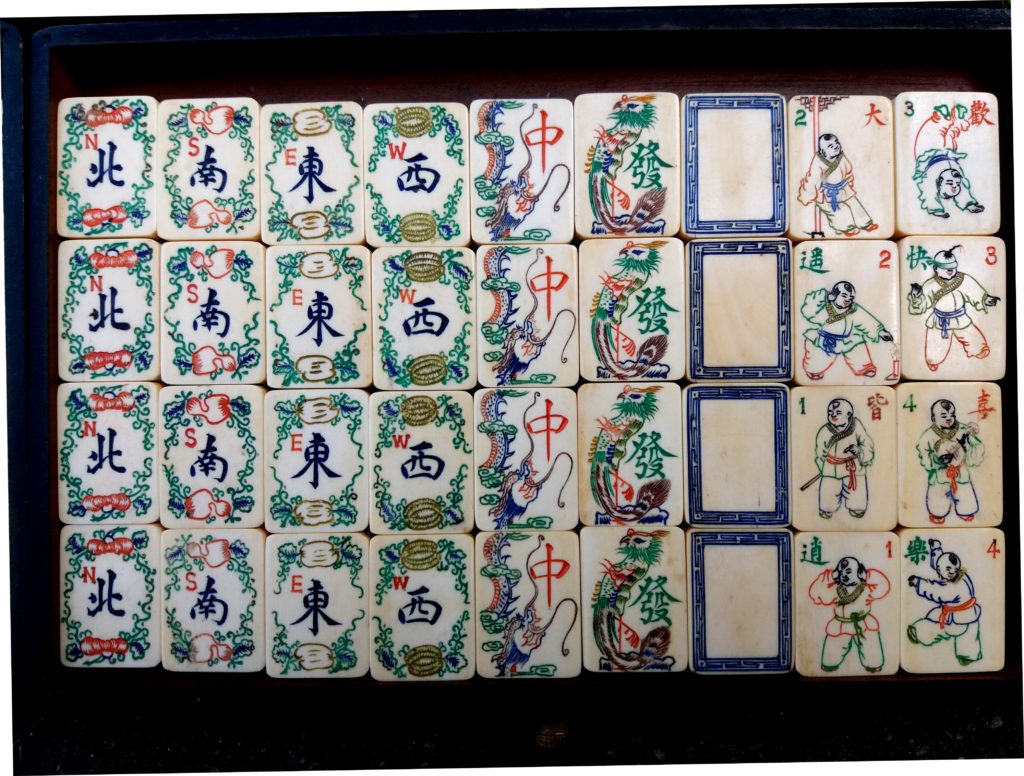 N 北 S 南 E 東 W 西 中 發 2 大 3 歡
N 北 S 南 E 東 W 西 中 發 遥 2 快 3
N 北 S 南 E 東 W 西 中 發 1 皆 4 喜
N 北 S 南 E 東 W 西 中 發 逍 1 樂 4